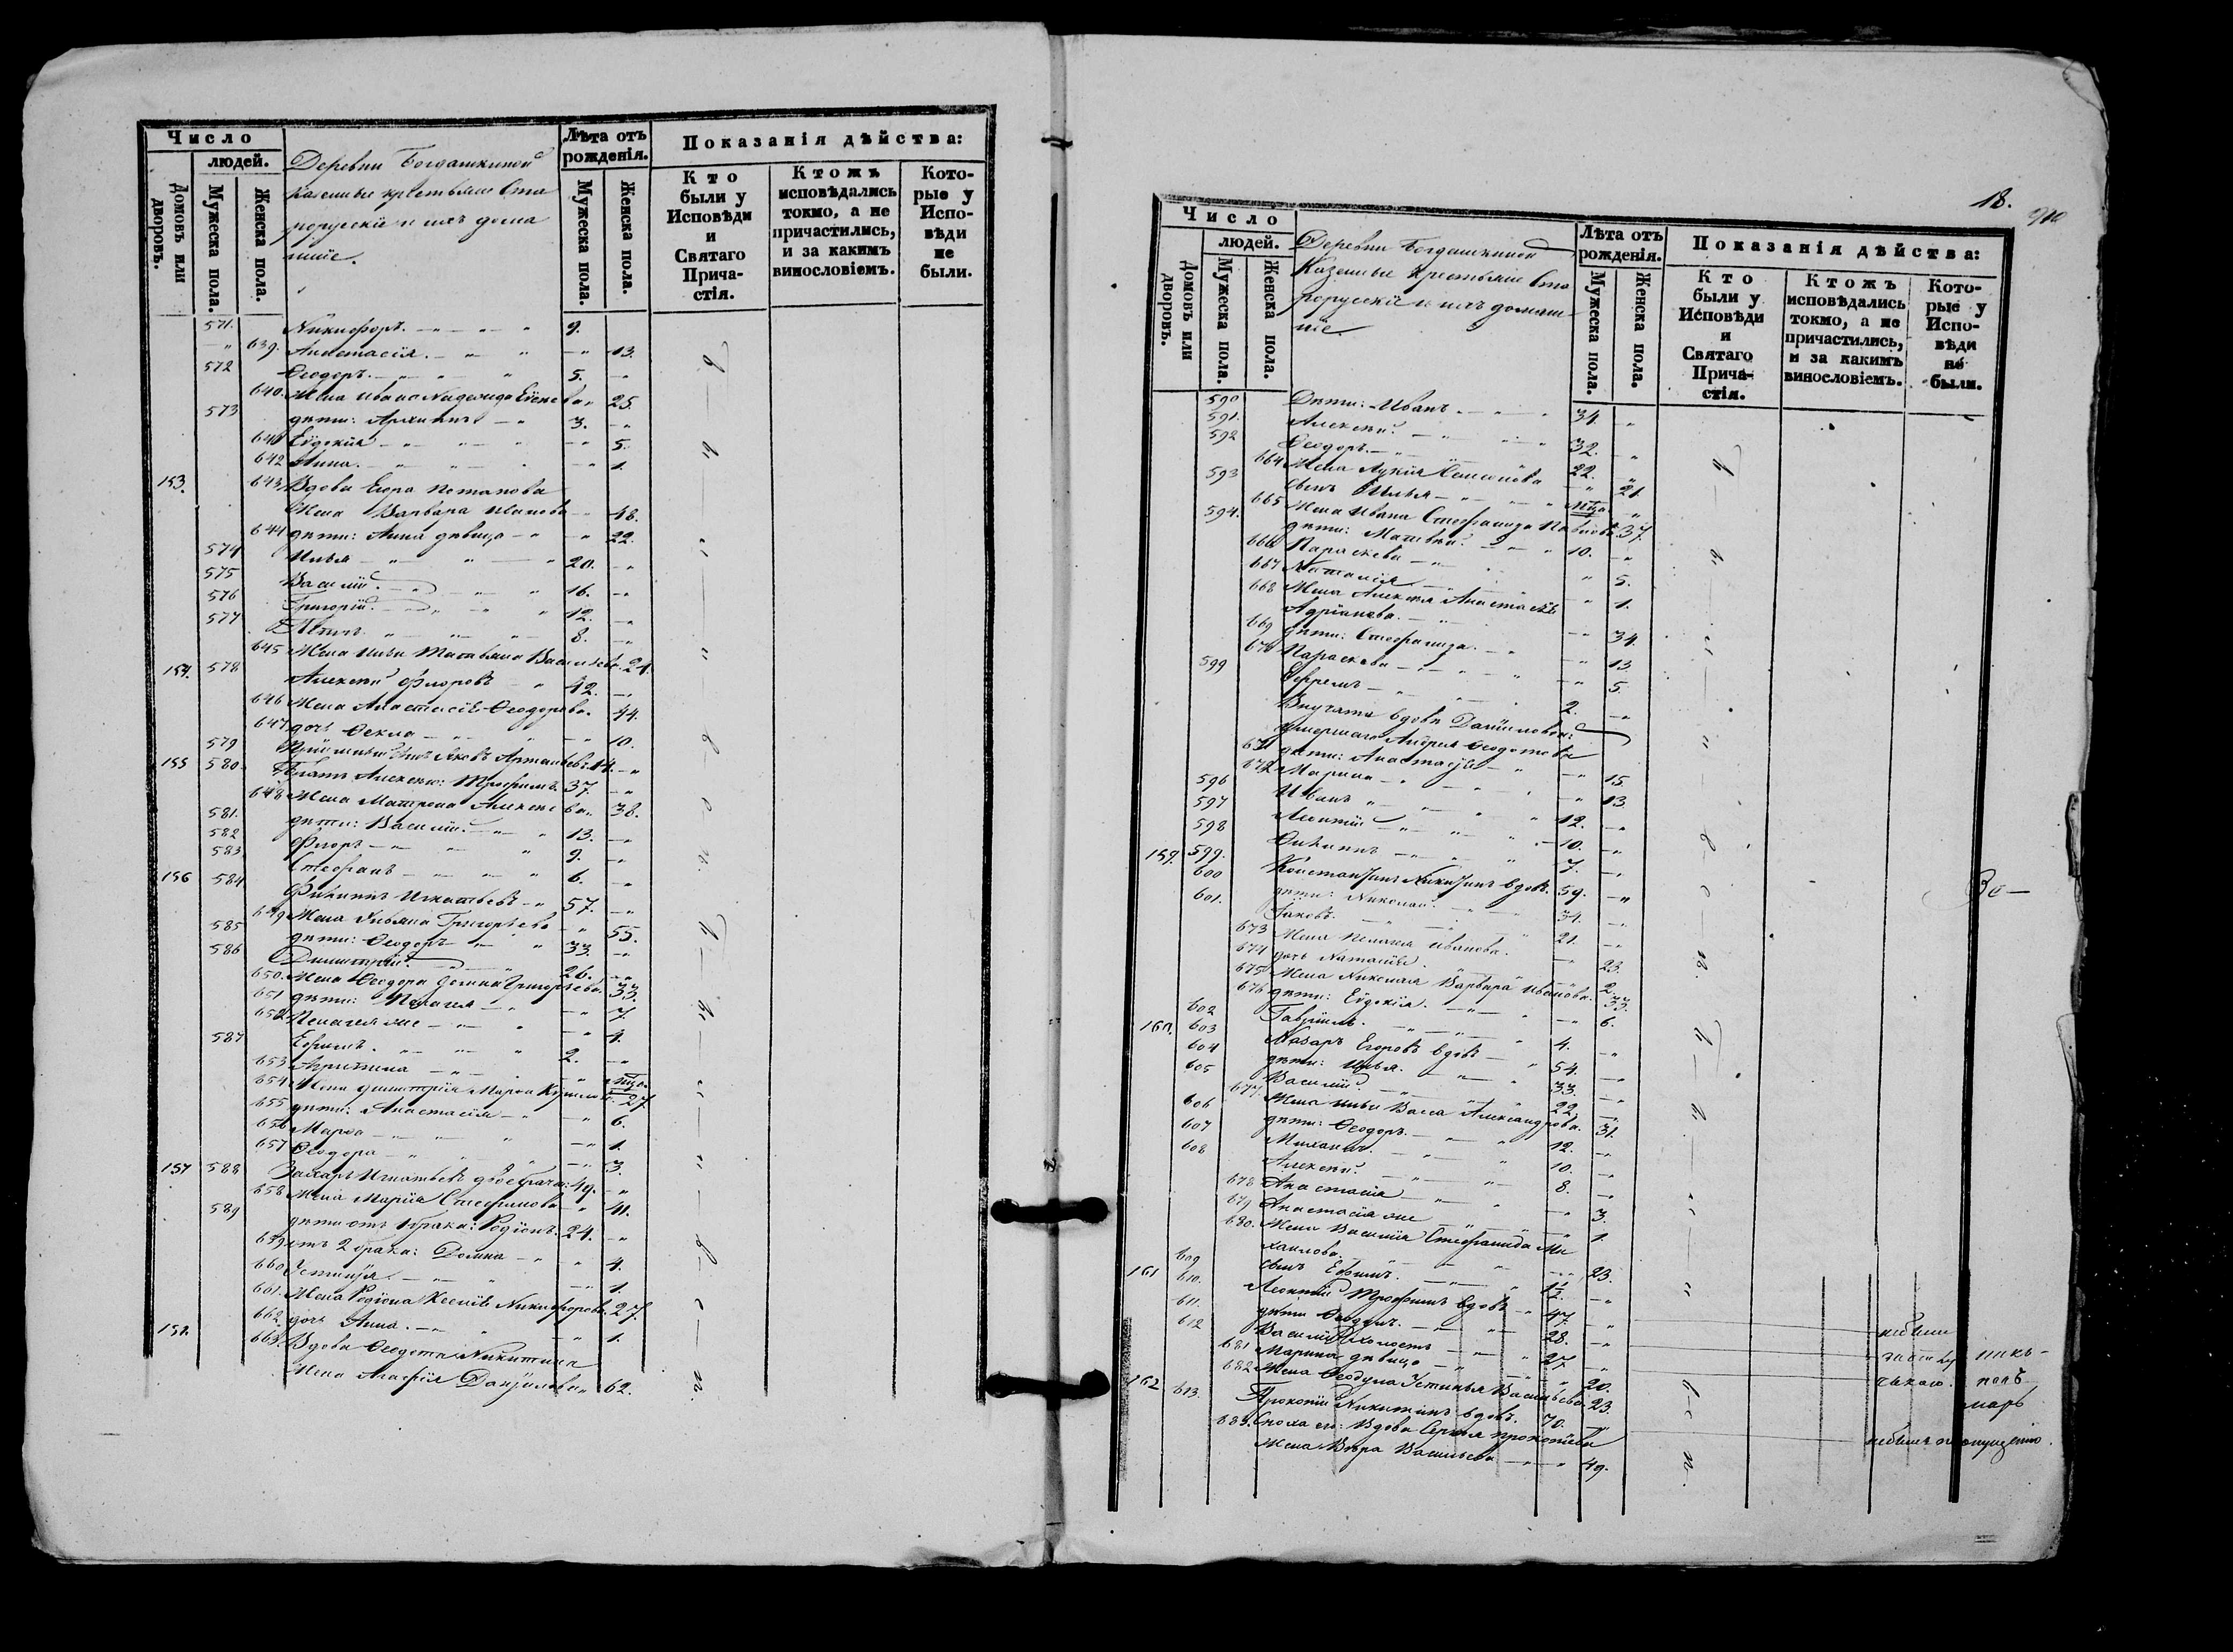 Число
людей.
Домовъ или дворовъ.
Мужеска пола.
Женска пола.
Деревни Богдашкиной
казенные крестьяне Ста
рорусскіе и ихъ дома
шніе.
Лѣта отъ рожденія.
Мужеска пола.
Женска пола.
Показанія дѣйства:
Кто были у Исповѣди и Святаго Прича-стія.
Ктожъ исповѣдались токмо, а не причастились, и за какимъ винословіемъ.
Кото-рые у Испо-вѣди не были.
571. Никифоръ. 9.
639. Анастасія. 13.
572 Ѳеодоръ. 5.
640. Жена Ивана Надежда 25.
573 дѣти: Архипъ 3.
641 Евдокія 5.
642 Анна. 1.
153. 643. Вдова Егора Потапова
Жена Варвара Иванова 48.
644 дѣти: Анна дѣвица 22.
574 Илья 20.
575 Василій. 16.
576 Григорій. 12.
577 8.
645 Жена Ильи Татьяна Васильева. 21.
154. 578 Алексѣй Флоровъ 42.
646 Жена Анастасія Ѳеодорова. 44.
647 дочь Ѳекла 10.
579 Яковъ 14.
155 580. Братъ Алексѣю: Трофимъ. 37.
648 Жена Матрона Алексѣева. 38.
581. дѣти: Василій. 13.
582 Флоръ 9.
583. Стефанъ 6.
156 584 Филиппъ Игнатьевъ 57.
649 Жена Ульяна Григорьева 55.
585 дѣти: Ѳеодоръ 33.
586 Димитрій. 26.
650. Жена Ѳеодора Домна Григорьева. 33.
651 дѣти: Пелагея 7.
652 Пелагея же 4.
587 Ефимъ. 2.
653 Агрипина
654 Жена Димитрія Марѳа 27.
655 дѣти: Анастасія 6.
656 Марѳа 1.
657 Ѳеодора 3.
157 588 Захаръ Игнатьевъ 49.
658 Жена Марія Стефанова 41.
589 дѣти отъ 1 брака: Родіонъ. 24.
659 отъ 2 брака: Домна 4.
660 Устинія. 1.
661. Жена Родіона Ксенія Никифорова. 27.
662. дочь Анна. 1.
158. 663. Вдова Ѳедота Никитина
Жена Агафія Даніилова 62.
18.
Число
людей.
Домовъ или дворовъ.
Мужеска пола.
Женска пола.
Деревни Богдашкиной
Казенные крестьяне Ста
рорусскіе и ихъ домаш
ніе
Лѣта отъ рожденія.
Мужеска пола.
Женска пола.
Показанія дѣйства:
Кто были у Исповѣди и Святаго Прича-стія.
Ктожъ исповѣдались токмо, а не причастились, и за какимъ винословіемъ.
Кото-рые у Испо-вѣди не были.
590 Дѣти: Иванъ. 34.
591. Алексѣй. 32.
592 Ѳеодоръ. 22.
664 Жена Лукія Семенова 21.
593 сынъ Илья
665 Жена Ивана Стефанида 37.
594. дѣти: Матвѣй. 10.
666 Параскева 5.
667 Наталія 1.
668 Жена Алексѣя Анастасія
Адріанова. 34.
669 дѣти: Стефанида. 13.
670 Параскева 5.
599 Ефремъ 2.
Внучата вдовы Даниловой:
умершаго Андрея Ѳеодотова
671 дѣти: Анастасія 15.
672 Марина 13.
596 Иванъ 12.
597 Леонтій 10.
598 Филиппъ 7.
159. 599. Константинъ Никитинъ вдовъ. 59.
600 дѣти: Николай. 34.
601. Іаковъ. 21.
673 Жена Пелагея Иванова. 23.
674 дочь Наталія. 2.
675 Жена Николая Варвара Иванова. 33.
676 дѣти: Евдокія. 6.
602 Гавріилъ. 4.
160. 603 Назаръ Егоровъ вдовъ 54.
604 дѣти: Илья. 33.
605 Василій. 22.
677. Жена Ильи Васса Александрова. 31.
606 дѣти: Ѳеодоръ. 12.
607 Михаилъ. 10.
608 Алексѣй. 8.
678 Анастасія 3.
679 Анастасія же 1.
680. Жена Василія Стефанида Ми
хаилова. 23.
609 сынъ Ефимъ. 1/2.
161 610. Леонтій Трофимъ вдовъ 47.
611. дѣти 28.
612 Василій холостъ 27.
681 Марина дѣвица 20.
682 Жена Устинья Васильева. 23.
162 613. Прокопій Никитинъ вдовъ. 70.
683. Сноха его: Вдова Сергѣя Прокопіева
Жена Вѣра Васильева 49.